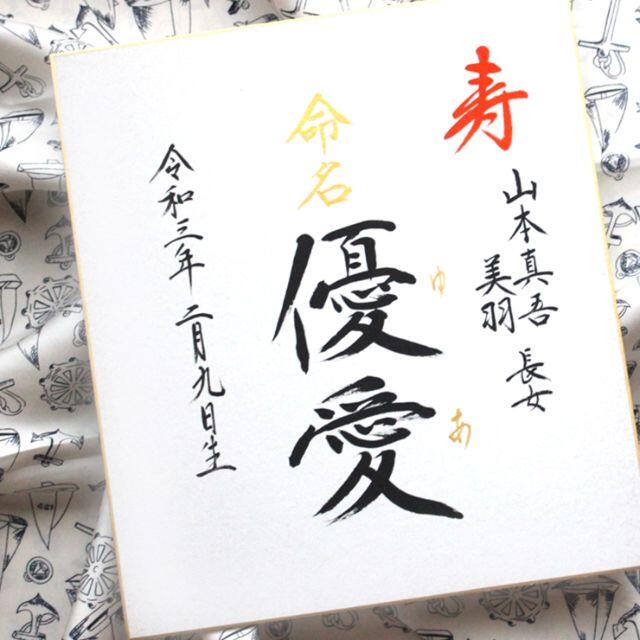 寿
山本真吾
美羽
長女
命名
優愛
ゆあ
令和三年二月九日生